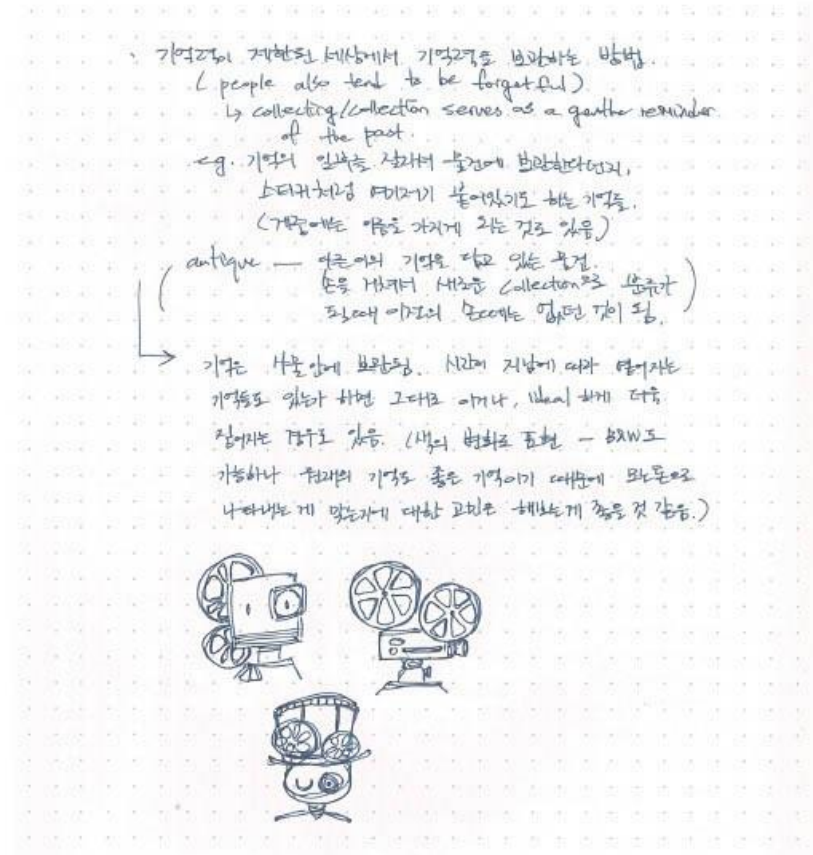 · 기억력이 제한된 세상에서 기억력을 보관하는 방법.
( people also tend to be forgetful )
↳ collecting/collection serves as a gentle reminder
of the past.
eg. 기억의 일부를 잘라서 물건에 보관한다던지,
스티커처럼 여기저기 붙어있기도 하는 기억들.
( 개중에는 이름을 가지게 되는 것도 있음 )
antique — 여러 기억을 담고 있는 물건.
손을 거쳐서 새로운 collection으로 분류가
될때 이전의 는 없던 것이 됨.
기억은 사물안에 보관됨. 시간이 지남에 따라 옅어지는
기억들도 있는가 하면 그대로 이거나, ideal 하게 더욱
짙어지는 경우도 있음. (색의 변화로 표현 — B&W도
가능하나 원래의 기억도 좋은 기억이기 때문에 모노톤으로
나타내는 게 맞는가에 대한 고민은 해보는게 좋을 것 같음.)